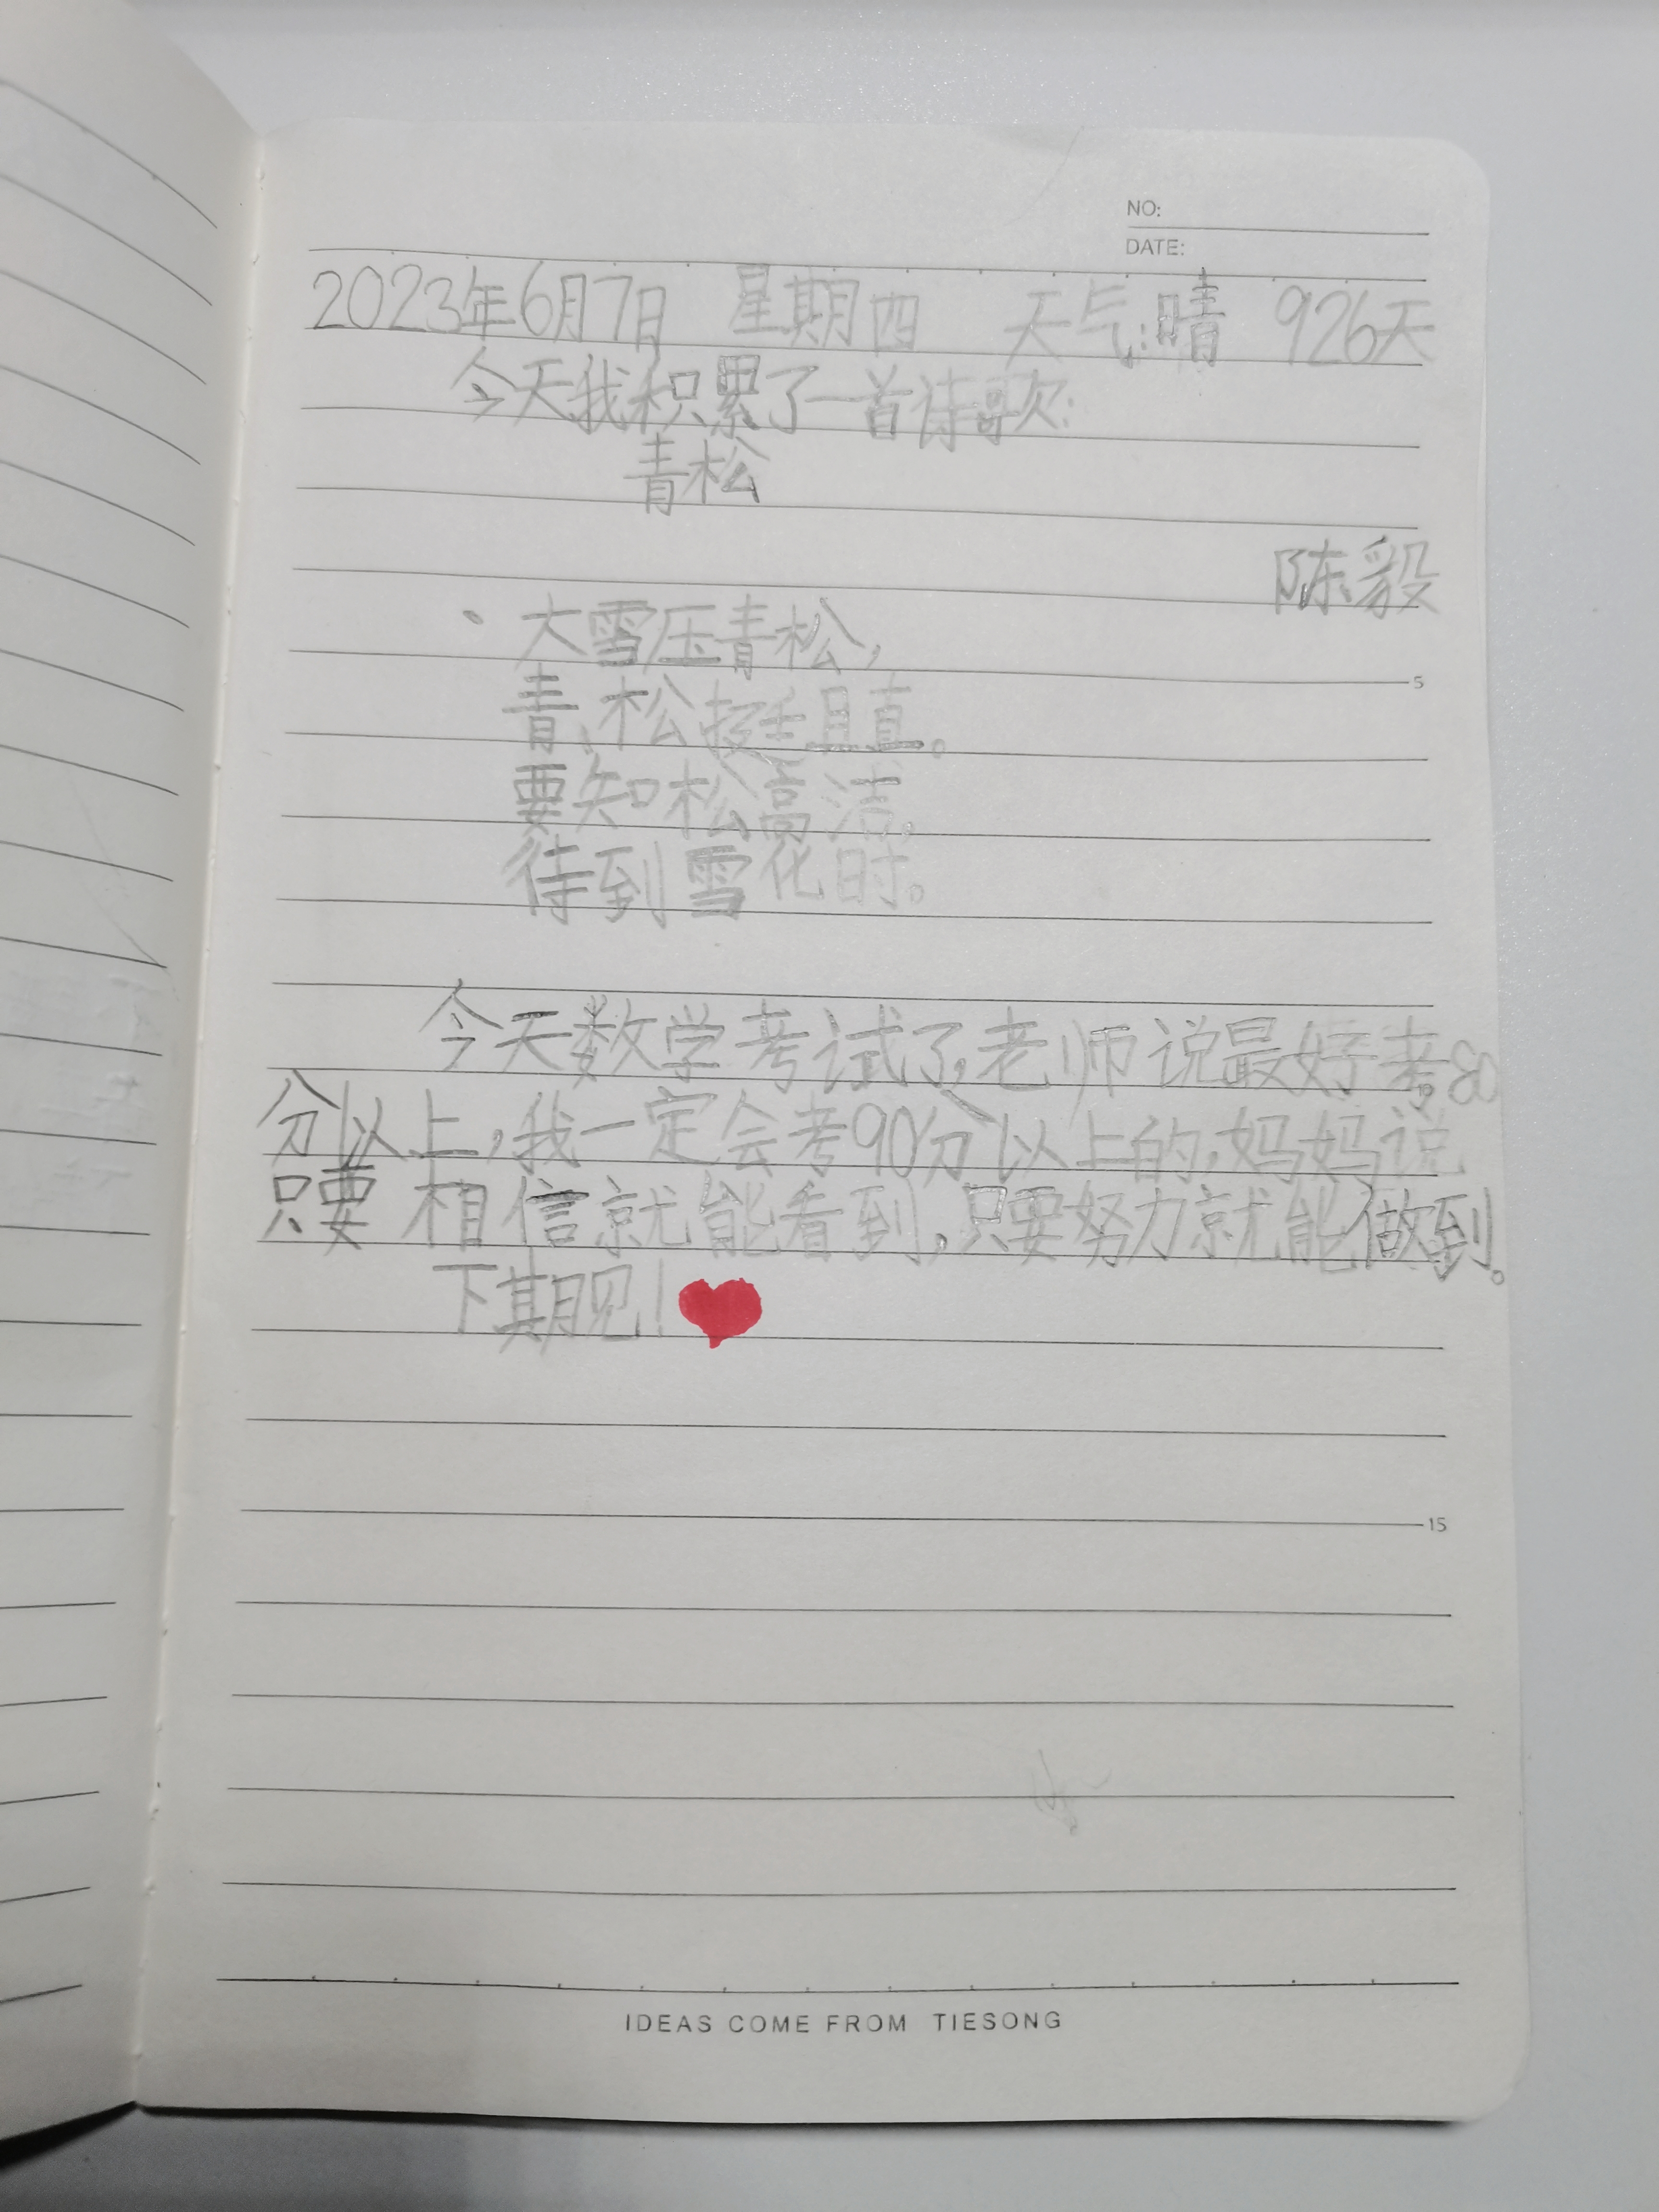 NO:
DATE:
2023年6月7日 星期四 天气:晴 926天
今天我积累了一首诗歌:
青松
陈毅
大雪压青松,
5
青松挺且直。
要知松高洁,
待到雪化时。
今天数学考试了,老师说最好考80
分以上,我一定会考90分以上的,妈妈说
只要相信就能看到,只要努力就能做到。
下期见!
15
IDEAS COME FROM TIESONG